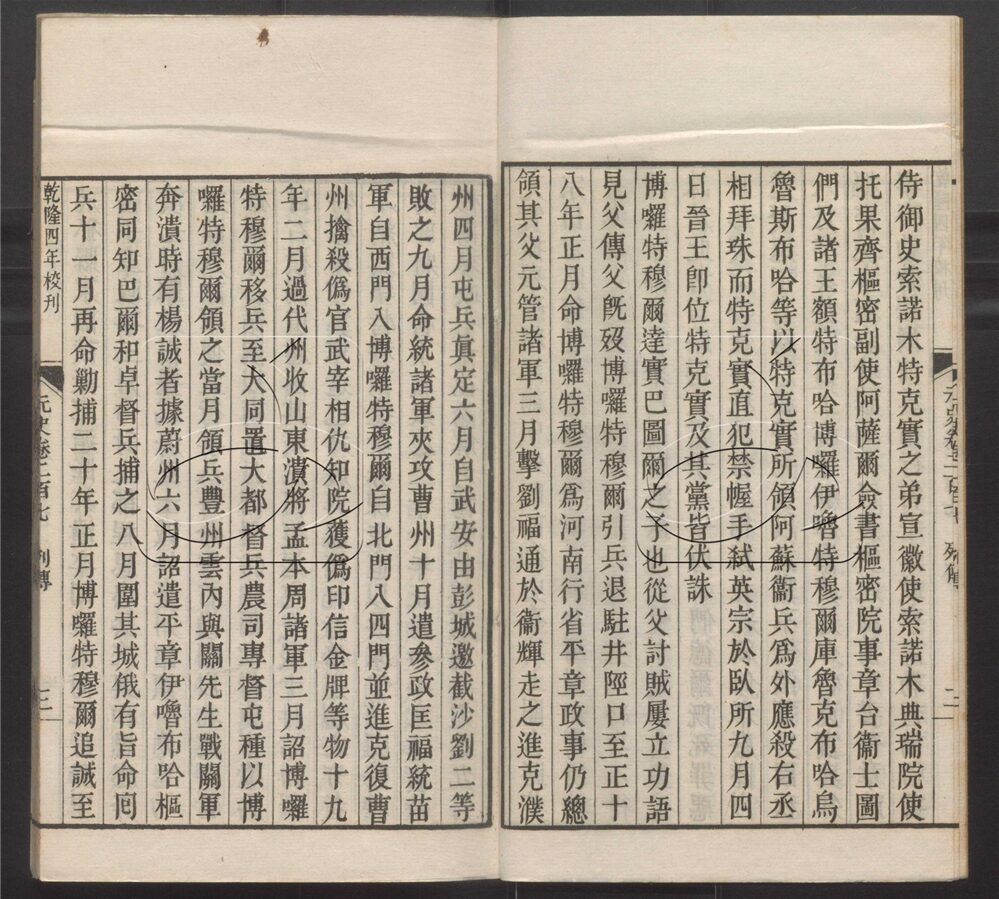 侍御史索諾木特克實之弟宣徽使索諾木典瑞院使
托果齊樞密副使阿薩爾僉書樞密院事章台衞士圖
們及諸王額特布哈博囉伊嚕特穆爾庫魯克布哈烏
魯斯布哈等以特克實所領阿蘇衞兵爲外應殺右丞
相拜珠而特克實直犯禁幄手弑英宗於臥所九月四
日晉王卽位特克實及其黨皆伏誅
博囉特穆爾達實巴圖爾之子也從父討賊屢立功語
見父傳父旣歿博囉特穆爾引兵退駐井陘口至正十
八年正月命博囉特穆爾爲河南行省平章政事仍總
領其父元管諸軍三月擊劉福通於衞輝走之進克濮
州四月屯兵眞定六月自武安由彭城邀截沙劉二等
敗之九月命統諸軍夾攻曹州十月遣參政匡福統苗
軍自西門入博囉特穆爾自北門入四門並進克復曹
州擒殺僞官武宰相仇知院獲僞印信金牌等物十九
年二月過代州收山東潰將孟本周諸軍三月詔博囉
特穆爾移兵至大同置大都督兵農司專督屯種以博
囉特穆爾領之當月領兵豐州雲內與關先生戰關軍
奔潰時有楊誠者據蔚州六月詔遣平章伊嚕布哈樞
密同知巴爾和卓督兵捕之八月圍其城俄有旨命囘
兵十一月再命勦捕二十年正月博囉特穆爾追誠至
乾隆四年校刊
元史卷二百七 列傳
三